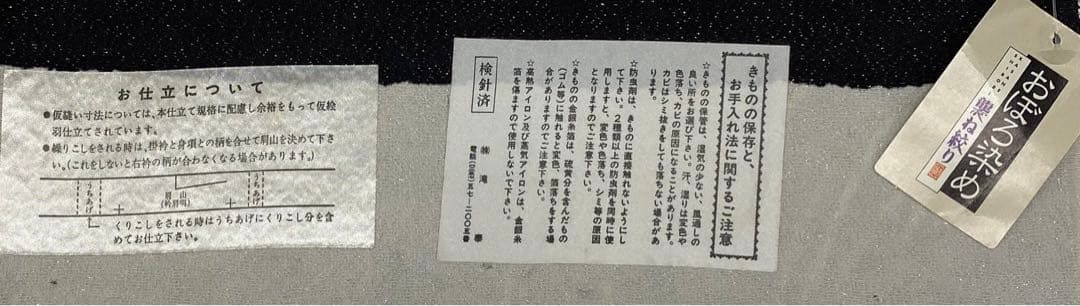 お仕立について
●仮縫い寸法については、本仕立て規格に配慮し余裕をもって仮絵
羽仕立てされています。
●繰りこしをされる時は、掛衿と身頃との柄を合せて肩山を決めて下さ
い。(これをしないと右衿の柄が合わなくなる場合があります。)
うちあげ
肩山
(衿肩明)
うちあげ
くりこしをされる時はうちあげにくりこし分を含
めてお仕立下さい。
きものの保存と、
お手入れ法に関するご注意
☆きものの保管は、湿気の少ない、風通しの
良い所をお選び下さい。汗、湿りは変色や
色落ち、カビの原因になることがあります。
カビはシミ抜きをしても落ちない場合があ
ります。
☆防虫剤は、きものに直接触れないようにし
て下さい。2種類以上の防虫剤を同時に使
用しますと、変色や色落ち、シミ等の原因
となりますのでご注意下さい。
☆きものの金銀糸箔は、硫黄分を含んだもの
(ゴム等)に触れると変色、箔落ちをする場
合がありますのでご注意下さい。
☆高熱アイロン及び蒸気アイロンは、金銀糸
箔を傷めますので使用しないで下さい。
㈱滝泰
検針済
おぼろ染め
襲ね絞り